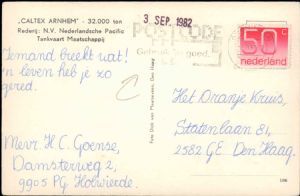 "CALTEX ARNHEM" - 32.000 ton
Rederij: N.V. Nederlandsche Pacific
Tankvaart Maatschappij
3 SEP. 1982
POSTCODE
Gebruik goed.
50 c
nederland
Iemand breekt wat!
'n leven heb je zo
gered.
Mevr. H.C. Goense,
Damsterweg 2,
9905 PG Holwierde.
Het Oranje Kruis,
Statenlaan 81,
2582 GE Den Haag